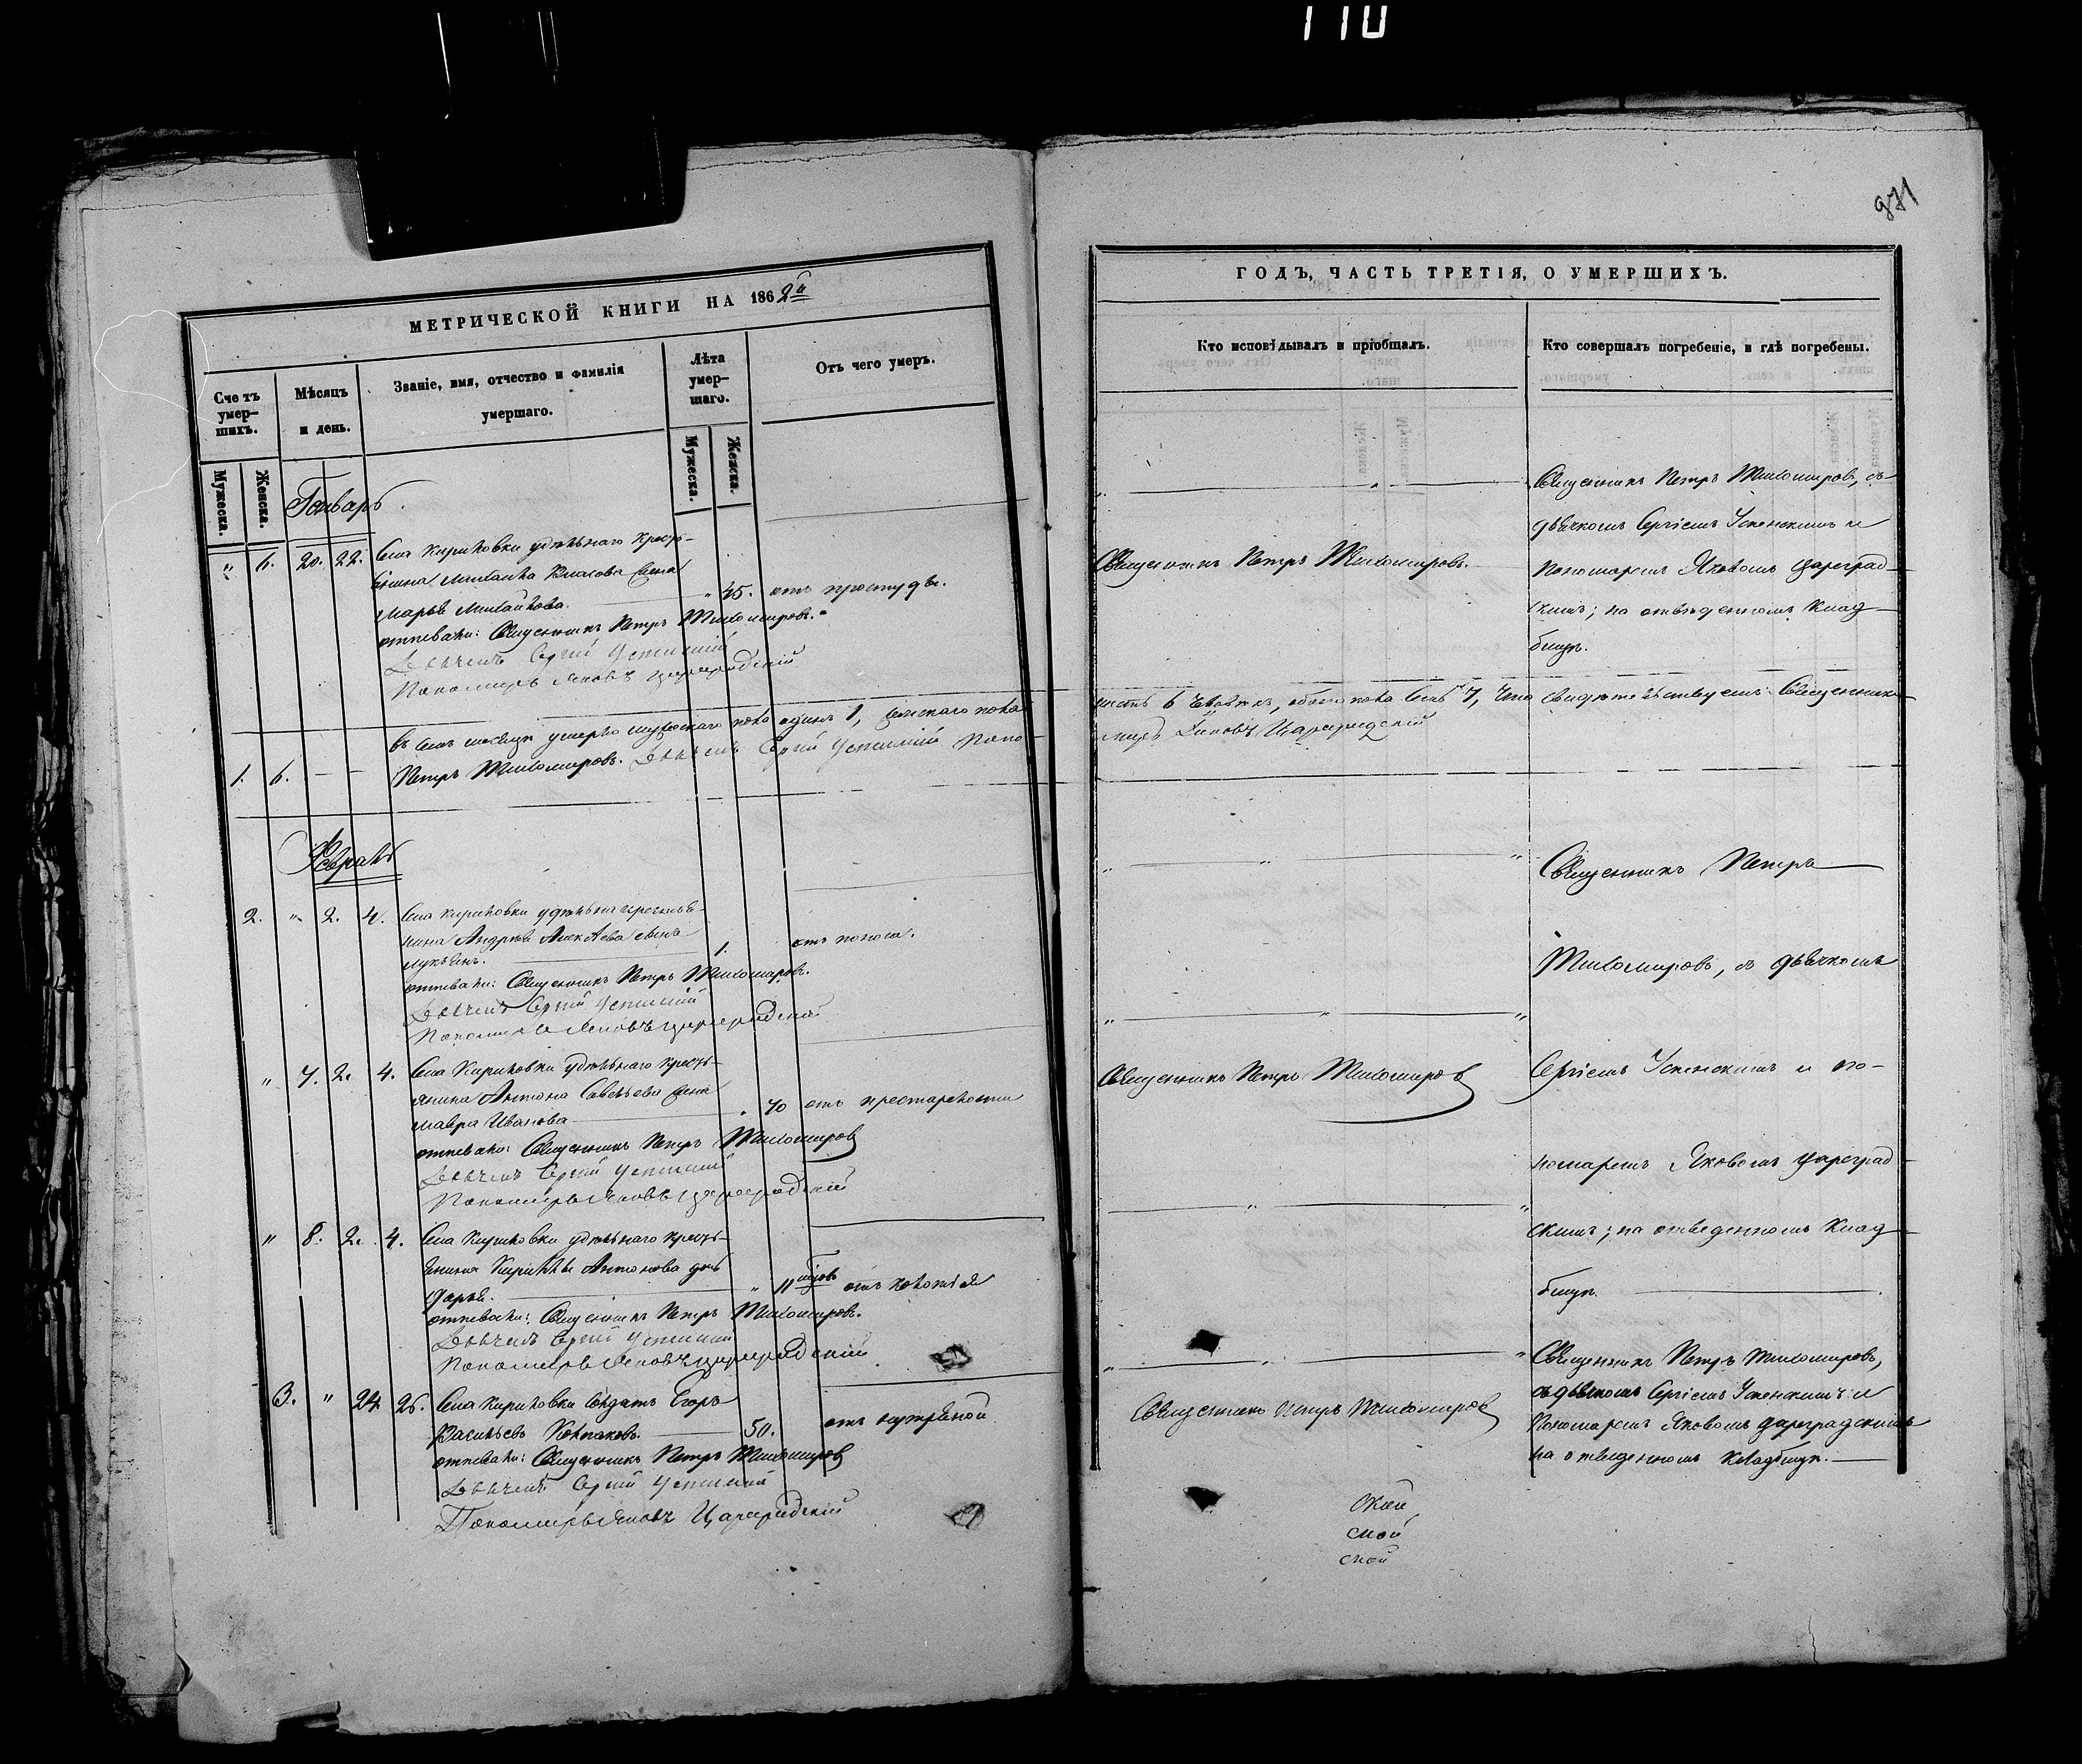 110
871
МЕТРИЧЕСКОЙ КНИГИ НА 1862й
Счетъ умер-шихъ.
Мужеска.
Женска.
Мѣсяцъ и день.
Званіе, имя, отчество и фамилія умершаго.
Лѣта умер-шаго.
Мужеска.
Женска.
Отъ чего умеръ.
Январь.
" 6. 20. 22. Села Кириловки удѣльнаго кресть-
янина Михаила Власова жена
Марья Михайлова. " 45. отъ простуды.
отпевали: Священникъ Петръ Тихомировъ.
Дьячекъ Сергій Успенскій
Пономарь Яковъ Цареградскій
въ семъ месяцѣ умерло мужескаго пола одинъ 1, женскаго пола
1. 6. — — Петръ Тихомировъ. Дьячекъ Сергій Успенскій Поно-
Февраль
2. " 2. 4. Села Кириловки удѣльна крестья-
нина Андрея Алексѣева сынъ
Лукьянъ. 1. отъ поноса.
отпевали: Священникъ Петръ Тихомировъ.
Дьячекъ Сергій Успенскій
Пономарь Яковъ Цареградскій
" 7. 2. 4. Села Кириловки удѣльнаго кресть-
янина Антона Савельева жена
Мавра Иванова " 70 отъ престарелости
отпевали: Священникъ Петръ Тихомировъ
Дьячекъ Сергій Успенскій
Пономарь Яковъ Цареградскій
" 8. 2. 4. Села Кириловки удѣльнаго кресть-
янина Кириллы Антонова дочь
Дарья. " 11
отпевали: Священникъ Петръ Тихомировъ.
Дьячекъ Сергій Успенскій
Пономарь Яковъ Цареградскій
3. " 24 26. Села Кириловки солдатъ Егоръ
Васильевъ Колпаковъ. 50. отъ
отпевали: Священникъ Петръ Тихомировъ
Дьячекъ Сергій Успенскій
Пономарь Яковъ Цареградскій
ГОДЪ, ЧАСТЬ ТРЕТІЯ, О УМЕРШИХЪ.
Кто исповѣдывалъ и пріобщалъ.
Кто совершалъ погребеніе, и гдѣ погребены.
Священникъ Петръ Тихомировъ, съ
дьячкомъ Сергіемъ Успенскимъ и
Священникъ Петръ Тихомировъ.
пономаремъ Яковомъ Цареград-
скимъ; на отведенномъ клад-
бищѣ.
шесть 6 человѣкъ, обоего пола семь 7, что свидѣтельствуемъ: Священникъ
марь Яковъ Цареградскій
Священникъ Петръ
Тихомировъ, съ дьячкомъ
Священникъ Петръ Тихомировъ
Сергіемъ Успенскимъ и по-
номаремъ Яковомъ Цареград-
скимъ; на отведенномъ клад-
бищѣ.
Священникъ Петръ Тихомировъ,
съ дьячкомъ Сергіемъ Успенскимъ и
Священникъ Петръ Тихомировъ
Пономаремъ Яковомъ Цареградскимъ
на отведенномъ кладбищѣ.
ской
ской